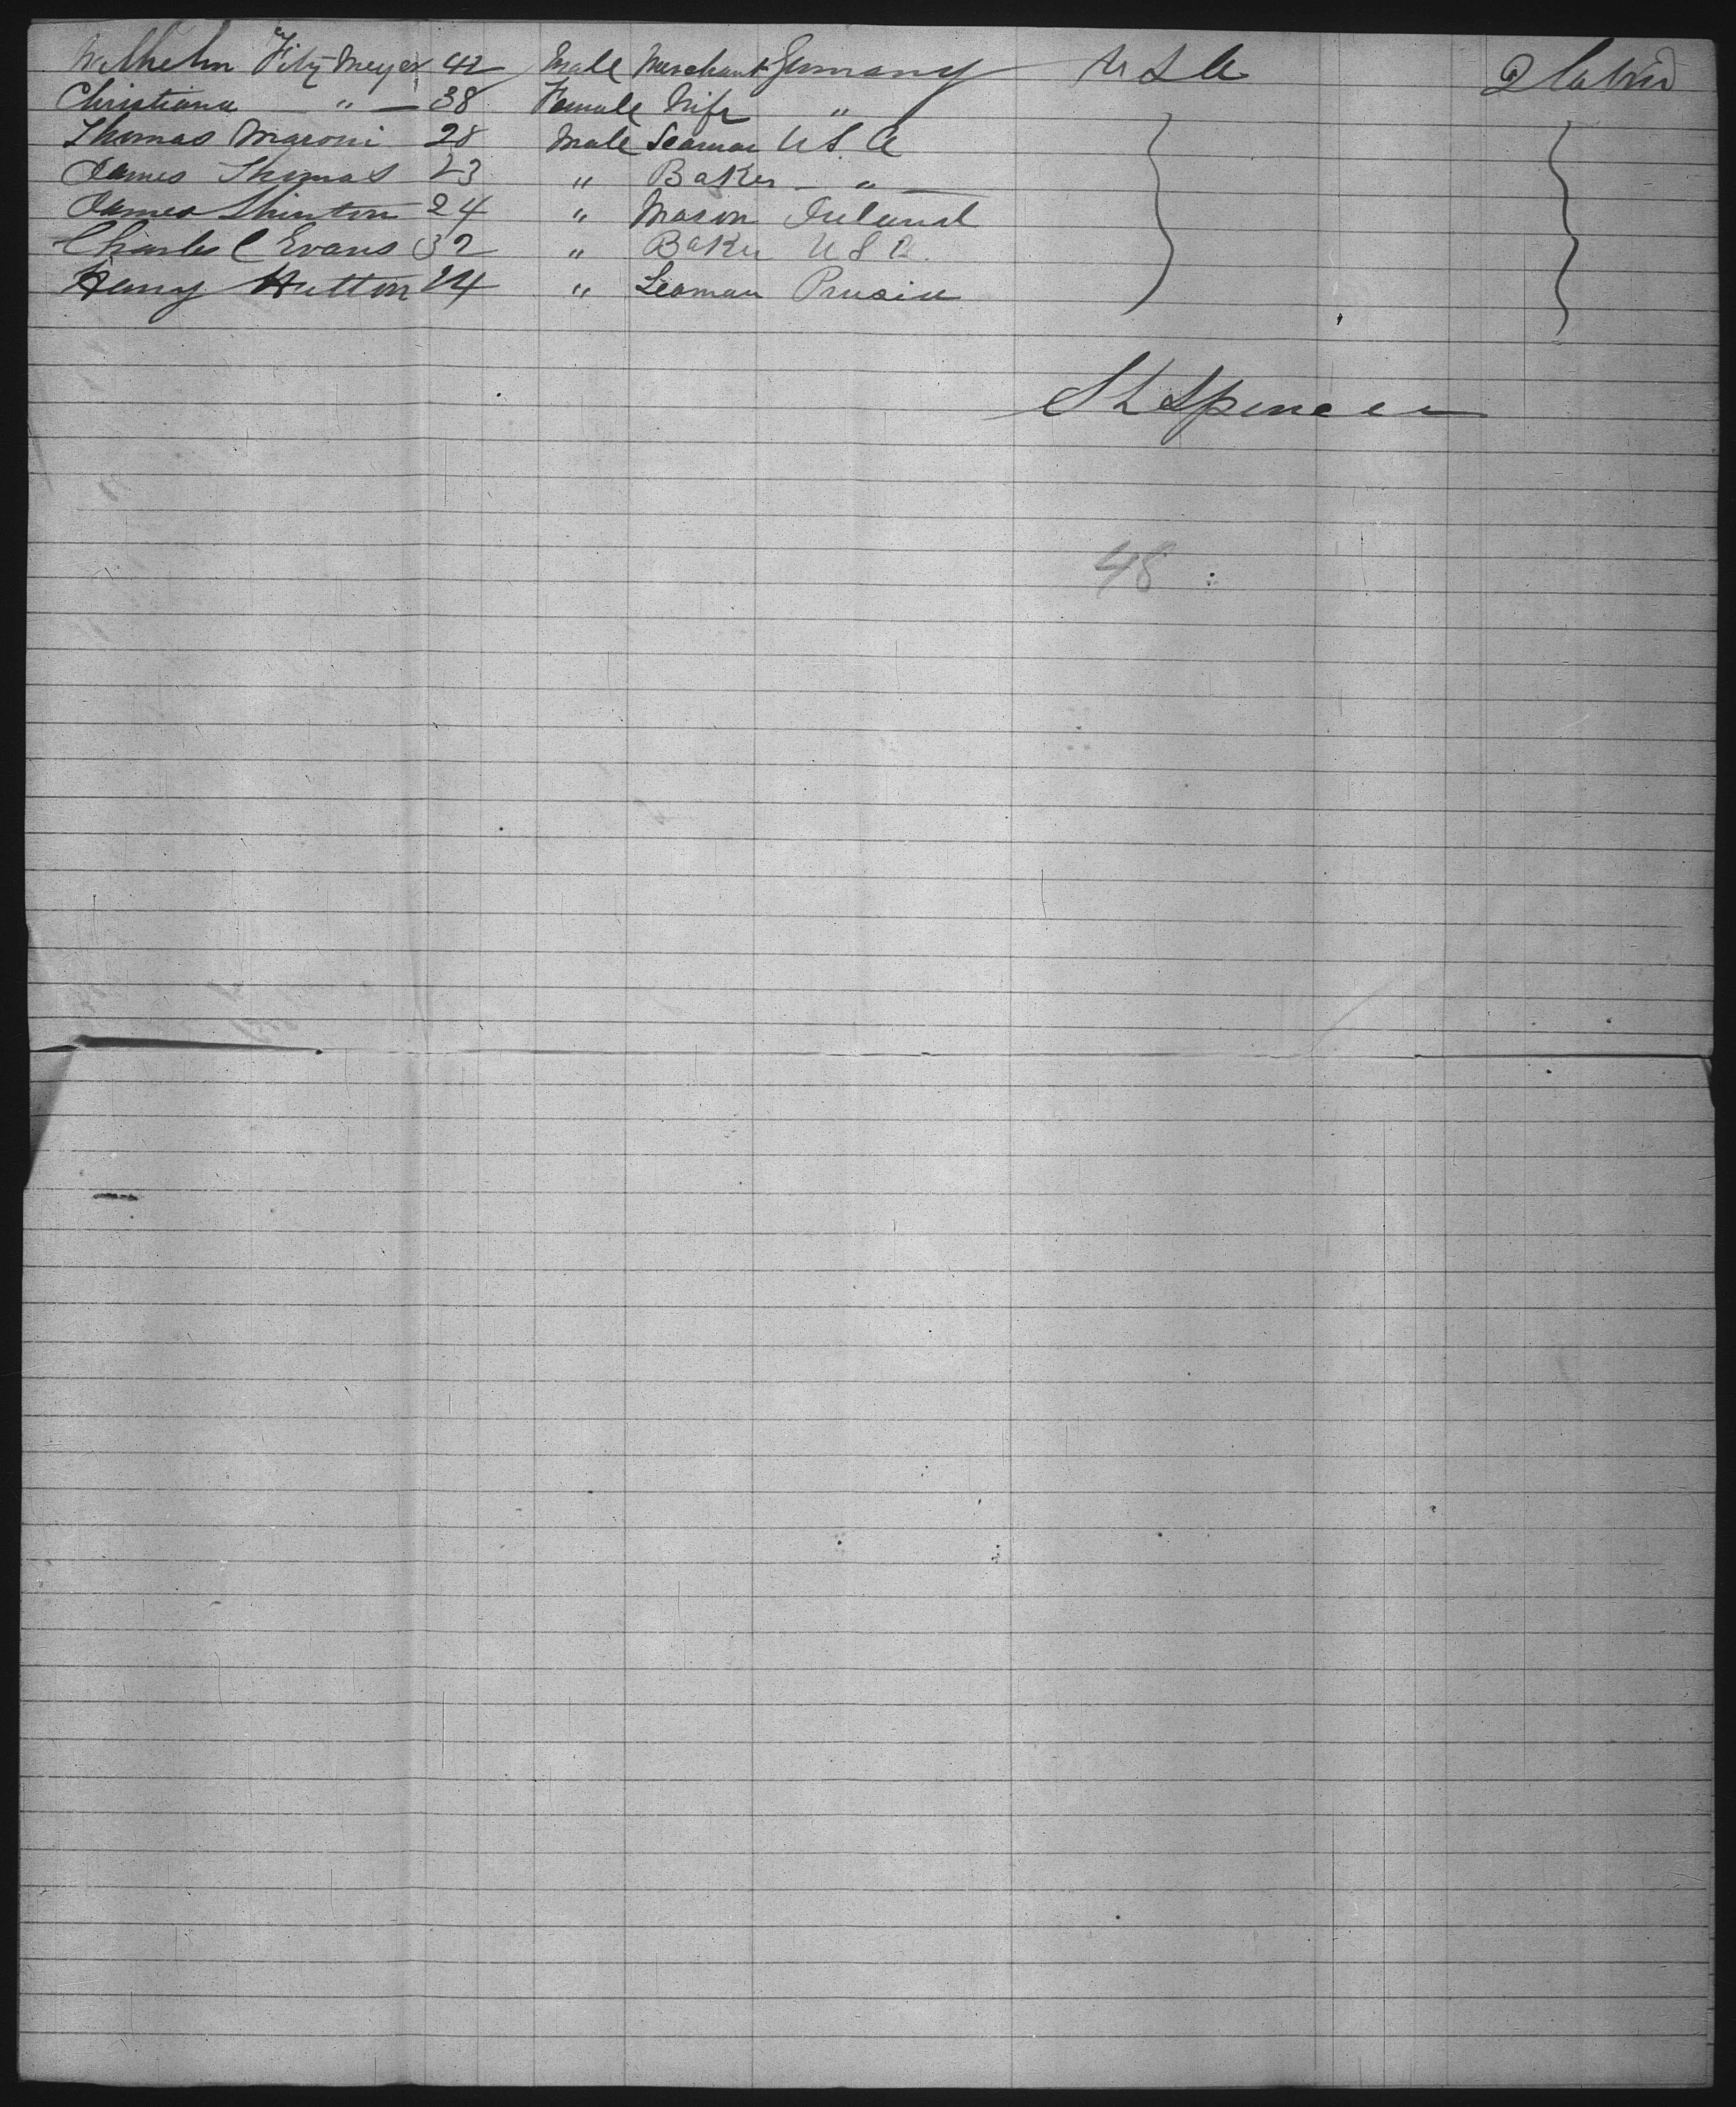 Wilhelm Fitz Meyer 42 Male Merchant Germany U S A 2 Cabin
Christiana " — 38 Female Wife "
Thomas 28 Male Seaman U S A
James Thomas 23 " Baker — " —
James Shinton 24 " Mason Ireland
Charles C Evans 32 " Baker U S A.
Henry Hutton 24 " Seaman Prusia
S L Spencer
48